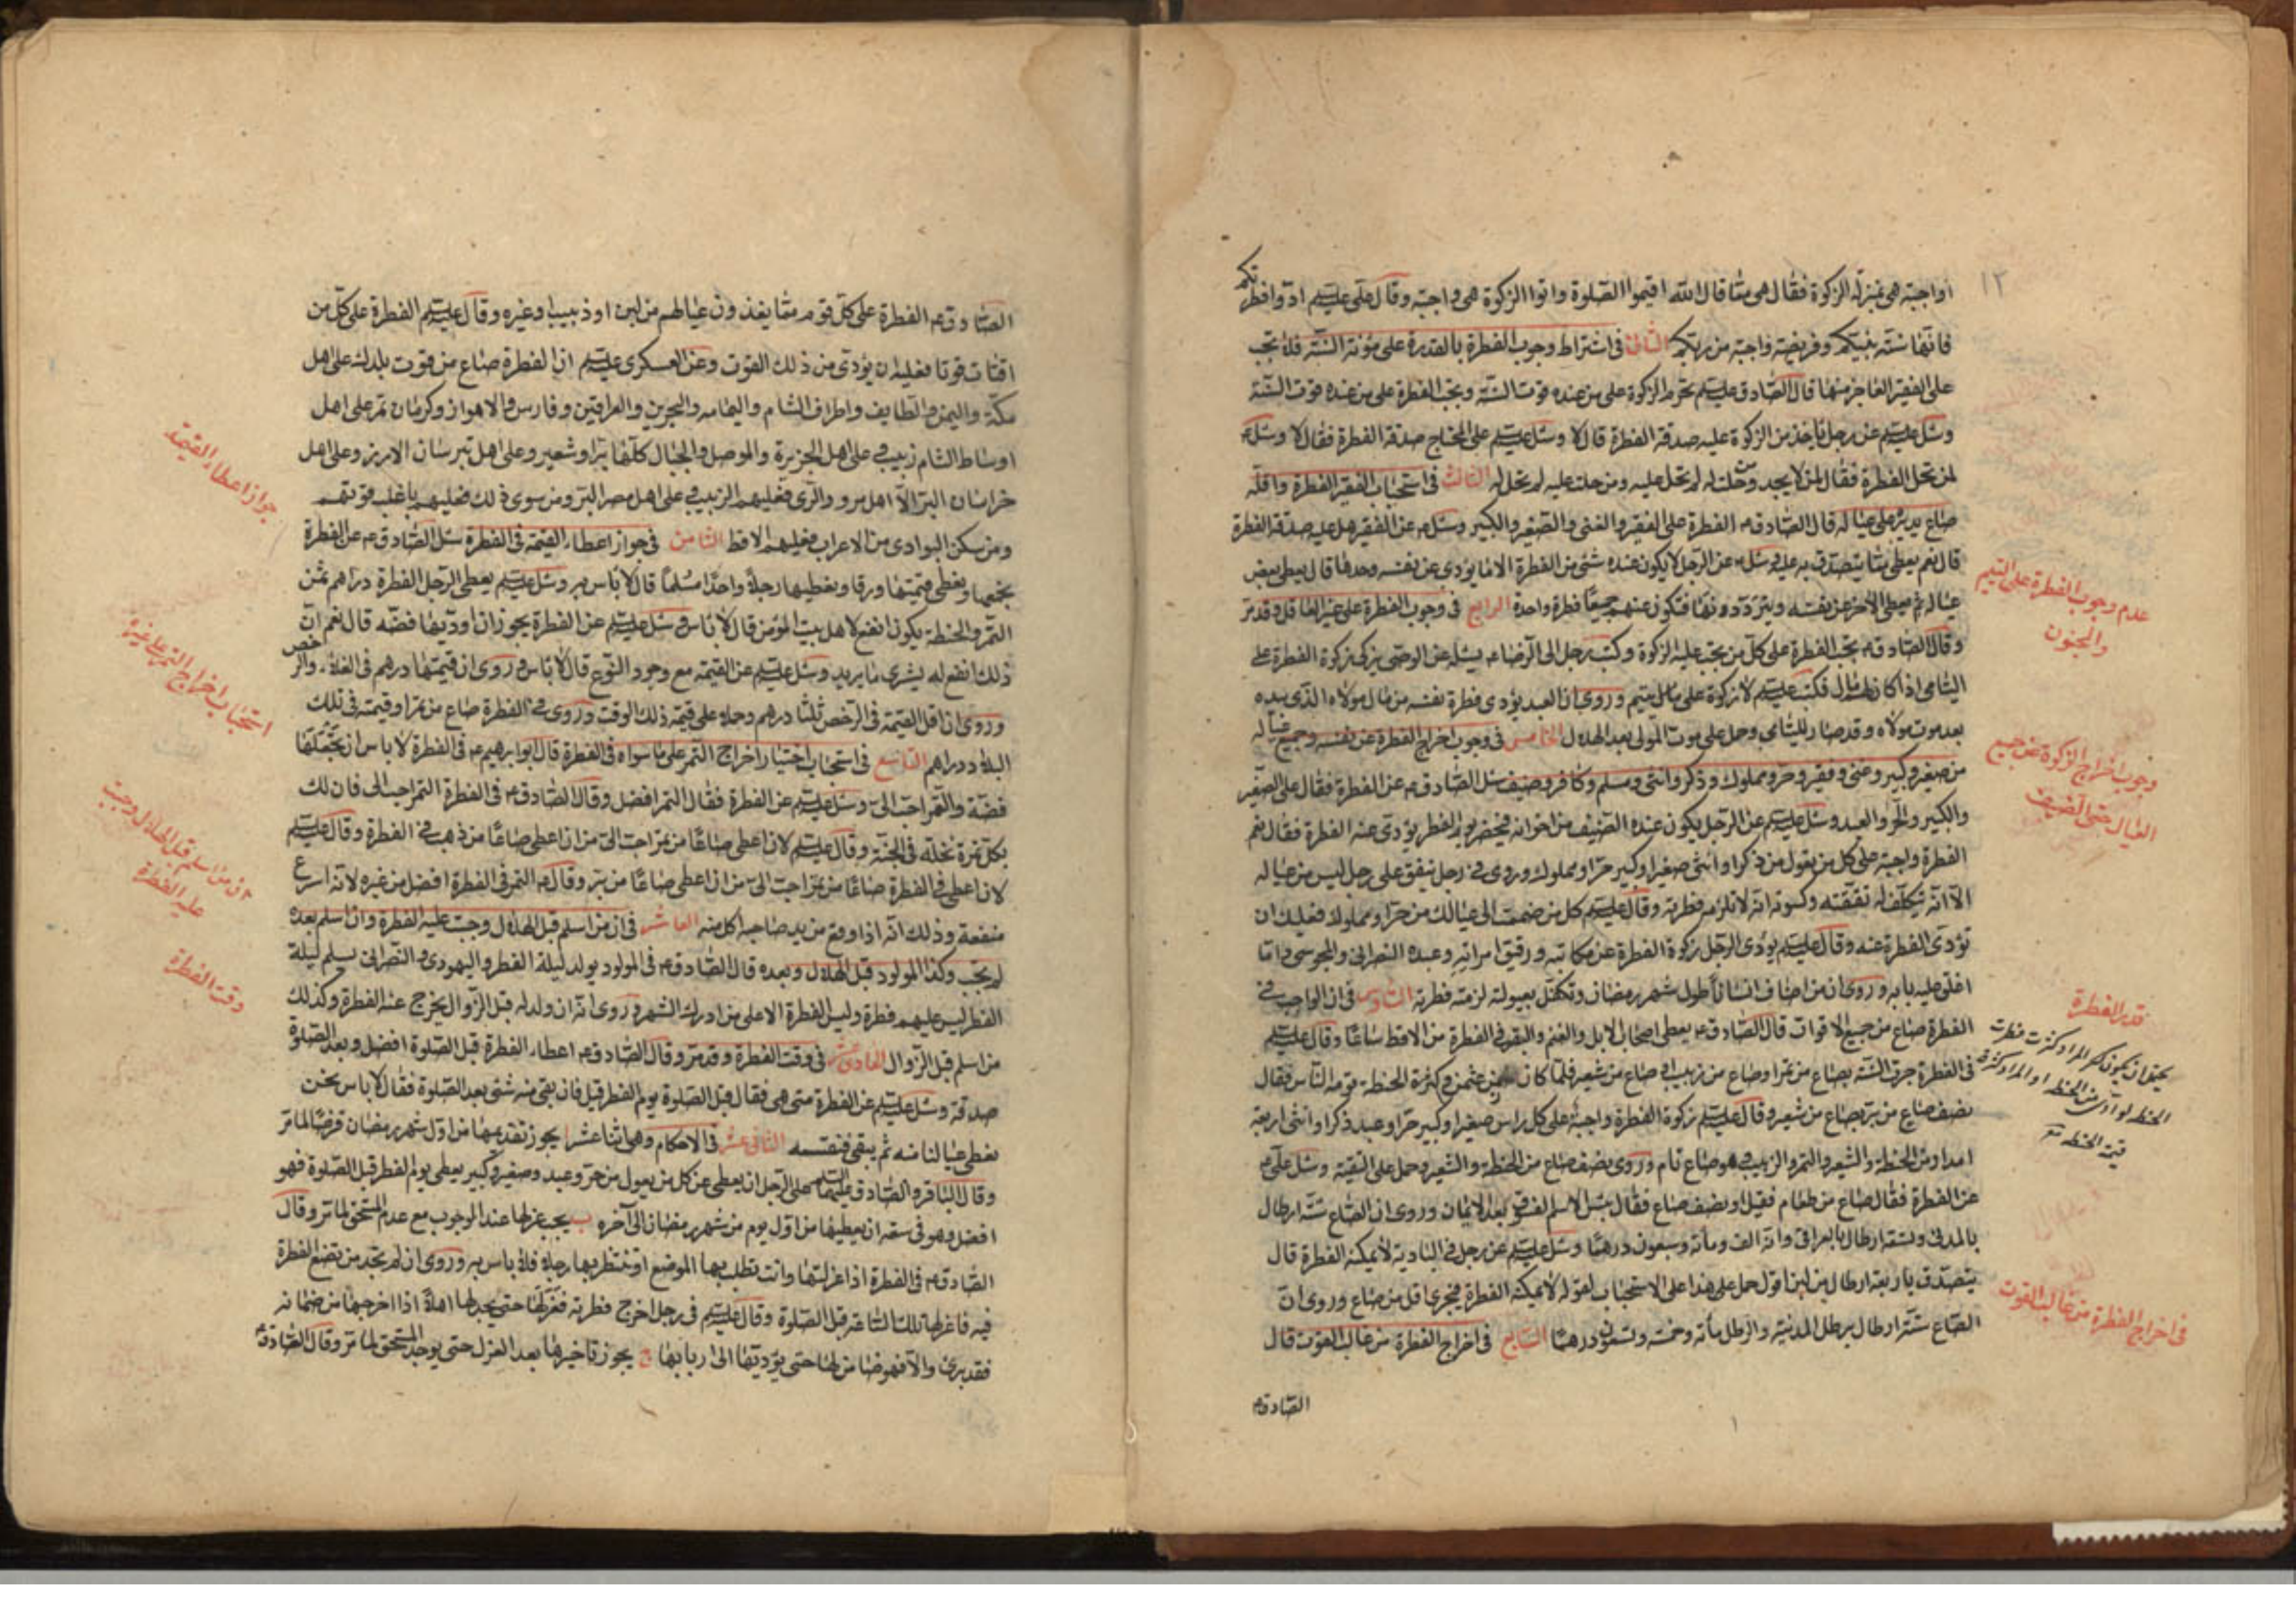 ١٢
اواجبة هى بمنزلة الزكوة فقال هى مما قال الله اقيموا الصلوة واتوا الزكوة هى واجبة وقال على عليه السلم ادوا فطرتكم
فانها سنة نبيكم وفريضة واجبة من ربكم الثانى فى اشتراط وجوب الفطرة بالقدرة على مؤنة السنة فلا تجب
على الفقير العاجز منها قال الصادق عليه السلم تحرم الزكوة على من عنده قوت السنة وتجب الفطرة على من عنده قوت السنة
وسئل عليه السلم عن رجل ياخذ من الزكوة عليه صدقة الفطرة قال لا وسئل عليه السلم على المحتاج صدقة الفطرة فقال لا وسئل ع
لمن تحل الفطرة فقال لمن لا يجد ومن حلت له لم تحل عليه ومن حلت عليه لم تحل له الثالث فى استحباب الفقير الفطرة واقله
صاع يديره على عياله قال الصادق ع الفطرة على الفقير والغنى والصغير والكبير وسئل ع عن الفقير هل عليه صدقة الفطرة
قال نعم يعطى مما يتصدق به عليه وسئل ع عن الرجل لا يكون عنده شئ من الفطرة الا ما يؤدى عن نفسه وحدها قال يعطى بعض
عياله ثم يعطى الاخر عن نفسه ويترددونها فتكون عنهم جميعا فطرة واحدة الرابع فى وجوب الفطرة على غير العاقل وقد مر
وقال الصادق ع تجب الفطرة على كل من تجب عليه الزكوة وكتب رجل الى الرضا ع يسئله عن الوصى يزكى زكوة الفطرة على
اليتامى اذا كان لهم مال فكتب عليه السلم لا زكوة على مال يتيم وروى ان العبد يؤدى فطرة نفسه من مال مولاه الذى بيده
بعد موت مولاه وقد صار لليتامى وحمل على موت المولى بعد الهلال الخامس فى وجوب اخراج الفطرة عن نفسه وجميع عياله
من صغير وكبير وغنى وفقير وحر ومملوك وذكر وانثى ومسلم وكافر وضيف سئل الصادق ع عن الفطرة فقال على الصغير
والكبير والحر والعبد وسئل عليه السلم عن الرجل يكون عنده الضيف من اخوانه فيحضر يوم الفطر يؤدى عنه الفطرة فقال نعم
الفطرة واجبة على كل من يعول من ذكر او انثى صغير او كبير حر او مملوك وروى فى رجل ينفق على رجل ليس من عياله
الا انه يتكلف له نفقته وكسوته انه لا تلزمه فطرته وقال عليه السلم كل من ضممت الى عيالك من حر او مملوك فعليك ان
تؤدى الفطرة عنه وقال عليه السلم يؤدى الرجل زكوة الفطرة عن مكاتبه ورقيق امراته وعبده النصرانى والمجوسى وما
اغلق عليه بابه وروى ان من اضاف انسانا طول شهر رمضان وتكفل بعيولته لزمته فطرته السادس فى ان الواجب فى
الفطرة صاع من جميع الاقوات قال الصادق ع يعطى اصحاب الابل والغنم والبقر فى الفطرة من الاقط صاعا وقال عليه السلم
فى الفطرة جرت السنة بصاع من تمر او صاع من زبيب او صاع من شعير فلما كان زمن عثمن وكثرة الحنطة قومه الناس فقال
نصف صاع من بر بصاع من شعير وقال عليه السلم زكوة الفطرة واجبة على كل راس صغير او كبير حر او عبد ذكر او انثى اربعة
امداد من الحنطة والشعير والتمر والزبيب وهو صاع تام وروى نصف صاع من الحنطة والشعير وحمل على التقية وسئل على ع
عن الفطرة فقال صاع من طعام فقيل او نصف صاع فقال بئس الاسم الفسوق بعد الايمان وروى ان الصاع ستة ارطال
بالمدنى وتسعة ارطال بالعراقى وانه الف ومائة وسبعون درهما وسئل عليه السلم عن رجل فى البادية لا يمكنه الفطرة قال
يتصدق باربعة ارطال من لبن اقول حمل على هذا على الاستحباب لقوله لا يمكنه الفطرة فيجزى اقل من صاع وروى ان
الصاع ستة ارطال برطل المدينة والرطل مائة وخمسة وتسعون درهما السابع فى اخراج الفطرة من غالب القوت قال
الصادق ع
عدم وجوب الفطرة على اليتيم
والمجنون
وجوب اخراج الزكوة عن جميع
العيال حتى الضيف
قدر الفطرة
فى اخراج الفطرة من غالب القوت
الصادق ع الفطرة على كل قوم مما يغذون عيالهم من لبن او زبيب او غيره وقال عليه السلم الفطرة على كل من
اقتات قوتا فعليه ان يؤدى من ذلك القوت وعن العسكرى عليه السلم ان الفطرة صاع من قوت بلدك على اهل
مكة واليمن والطايف واطراف الشام واليمامه والبحرين والعراقين وفارس والاهواز وكرمان تمر على اهل
اوساط الشام زبيب وعلى اهل الجزيرة والموصل والجبال كلها بر او شعير وعلى اهل تبرستان الارز وعلى اهل
خراسان البر الا اهل مرو والرى فعليهم الزبيب وعلى اهل مصر البر ومن سوى ذلك فعليهم ما غلب قوتهم
ومن سكن البوادى من الاعراب فعليهم الاقط الثامن فى جواز اعطاء القيمة فى الفطرة سئل الصادق ع عن الفطرة
يجمعها ويعطى قيمتها ورقا ويعطيها رجلا واحدا مسلما قال لا باس به وسئل عليه السلم يعطى الرجل الفطرة دراهم ثمن
التمر والحنطة يكون انفع لاهل بيت المؤمن قال لا باس وسئل عليه السلم عن الفطرة يجوز ان اؤديها فضة قال نعم ان
ذلك انفع له يشترى ما يريد وسئل عليه السلم عن القيمة مع وجود النوع قال لا باس وروى ان قيمتها درهم فى الغلاء والرخص
وروى ان اقل القيمة فى الرخص ثلثا درهم وحمل على قيمة ذلك الوقت وروى فى الفطرة صاع من تمر او قيمته فى تلك
البلاد دراهم التاسع فى استحباب اختيار اخراج التمر على ما سواه فى الفطرة قال ابو ابرهيم ع فى الفطرة لا باس ان تجعلها
فضة والتمر احب الى وسئل عليه السلم عن الفطرة فقال التمر افضل وقال الصادق ع فى الفطرة التمر احب الى فان لك
بكل تمرة نخلة فى الجنة وقال عليه السلم لان اعطى صاعا من تمر احب الى من ان اعطى صاعا من ذهب فى الفطرة وقال عليه السلم
لان اعطى فى الفطرة صاعا من تمر احب الى من ان اعطى صاعا من بر وقال ع التمر فى الفطرة افضل من غيره لانه اسرع
منفعة وذلك انه اذا وقع من يد صاحبه اكل منه العاشر فى ان من اسلم قبل الهلال وجبت عليه الفطرة وان اسلم بعده
لم تجب وكذا المولود قبل الهلال وبعده قال الصادق ع فى المولود يولد ليلة الفطر واليهودى والنصرانى يسلم ليلة
الفطر ليس عليهم فطرة وليس الفطرة الا على من ادرك الشهر وروى انه ان ولد له قبل الزوال يخرج عنه الفطرة وكذلك
من اسلم قبل الزوال الحادى عشر فى وقت الفطرة وقد مر وقال الصادق ع اعطاء الفطرة قبل الصلوة افضل وبعد الصلوة
صدقة وسئل عليه السلم عن الفطرة متى هى فقال قبل الصلوة يوم الفطر قيل فان بقى منه شئ بعد الصلوة فقال لا باس نحن
نعطى عيالنا منه ثم يبقى فنقسمه الثانى عشر فى الاحكام وهى اثنا عشر ا يجوز تقديمها من اول شهر رمضان قرضا لما مر
وقال الباقر والصادق عليهما السلم على الرجل ان يعطى عن كل من يعول من حر وعبد وصغير وكبير يعطى يوم الفطر قبل الصلوة فهو
افضل وهو فى سعة ان يعطيها من اول يوم من شهر رمضان الى آخره ب يجب عزلها عند الوجوب مع عدم المستحق لما مر وقال
الصادق ع فى الفطرة اذا عزلتها وانت تطلب بها الموضع او تنتظر بها رجلا فلا باس به وروى ان لم تجد من تضع الفطرة
فيه فاعزلها تلك الساعة قبل الصلوة وقال عليه السلم فى رجل اخرج فطرته فعزلها حتى يجد لها اهلا اذا اخرجها من ضمانه
فقد برئ والا فهو ضامن لها حتى يؤديها الى اربابها ج يجوز تاخيرها بعد العزل حتى يوجد المستحق لما مر وقال الصادق ع
جواز اعطاء القيمة
استحباب اخراج التمر على غيره
ان من اسلم قبل الهلال وجبت
عليه الفطرة
وقت الفطرة